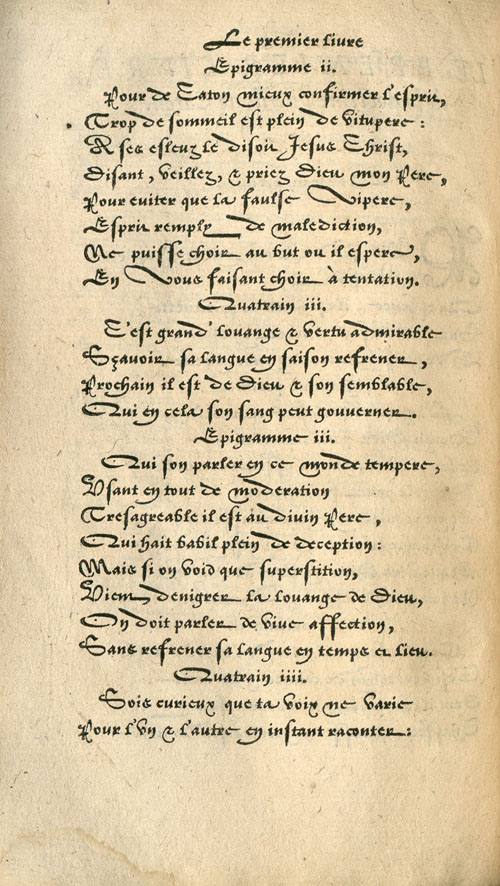 Le premier livre
Epigramme ii.
Pour de Caton mieux confirmer l'esprit,
Trop de sommeil est plein de vitupere :
A ses esleuz le disoit Jesus Christ,
Disant, veillez, & priez Dieu mon Pere,
Pour eviter que la faulse Vipere,
Esprit remply de malediction,
Ne puisse choir au but ou il espere,
En Vous faisant choir à tentation.
Quatrain iii.
C'est grand' louange & vertu admirable
Sçavoir sa langue en saison refrener,
Prochain il est de Dieu & son semblable,
Qui en cela son sang peut gouverner.
Epigramme iii.
Qui son parler en ce monde tempere,
Usant en tout de moderation
Tresagreable il est au divin Pere,
Qui hait babil plein de deception :
Mais si on void que superstition,
Vient denigrer la louange de Dieu,
On doit parler de vive affection,
Sans refrener sa langue en temps et lieu.
Quatrain iiii.
Sois curieux que ta voix ne varie
Pour l'un & l'autre en instant raconter :